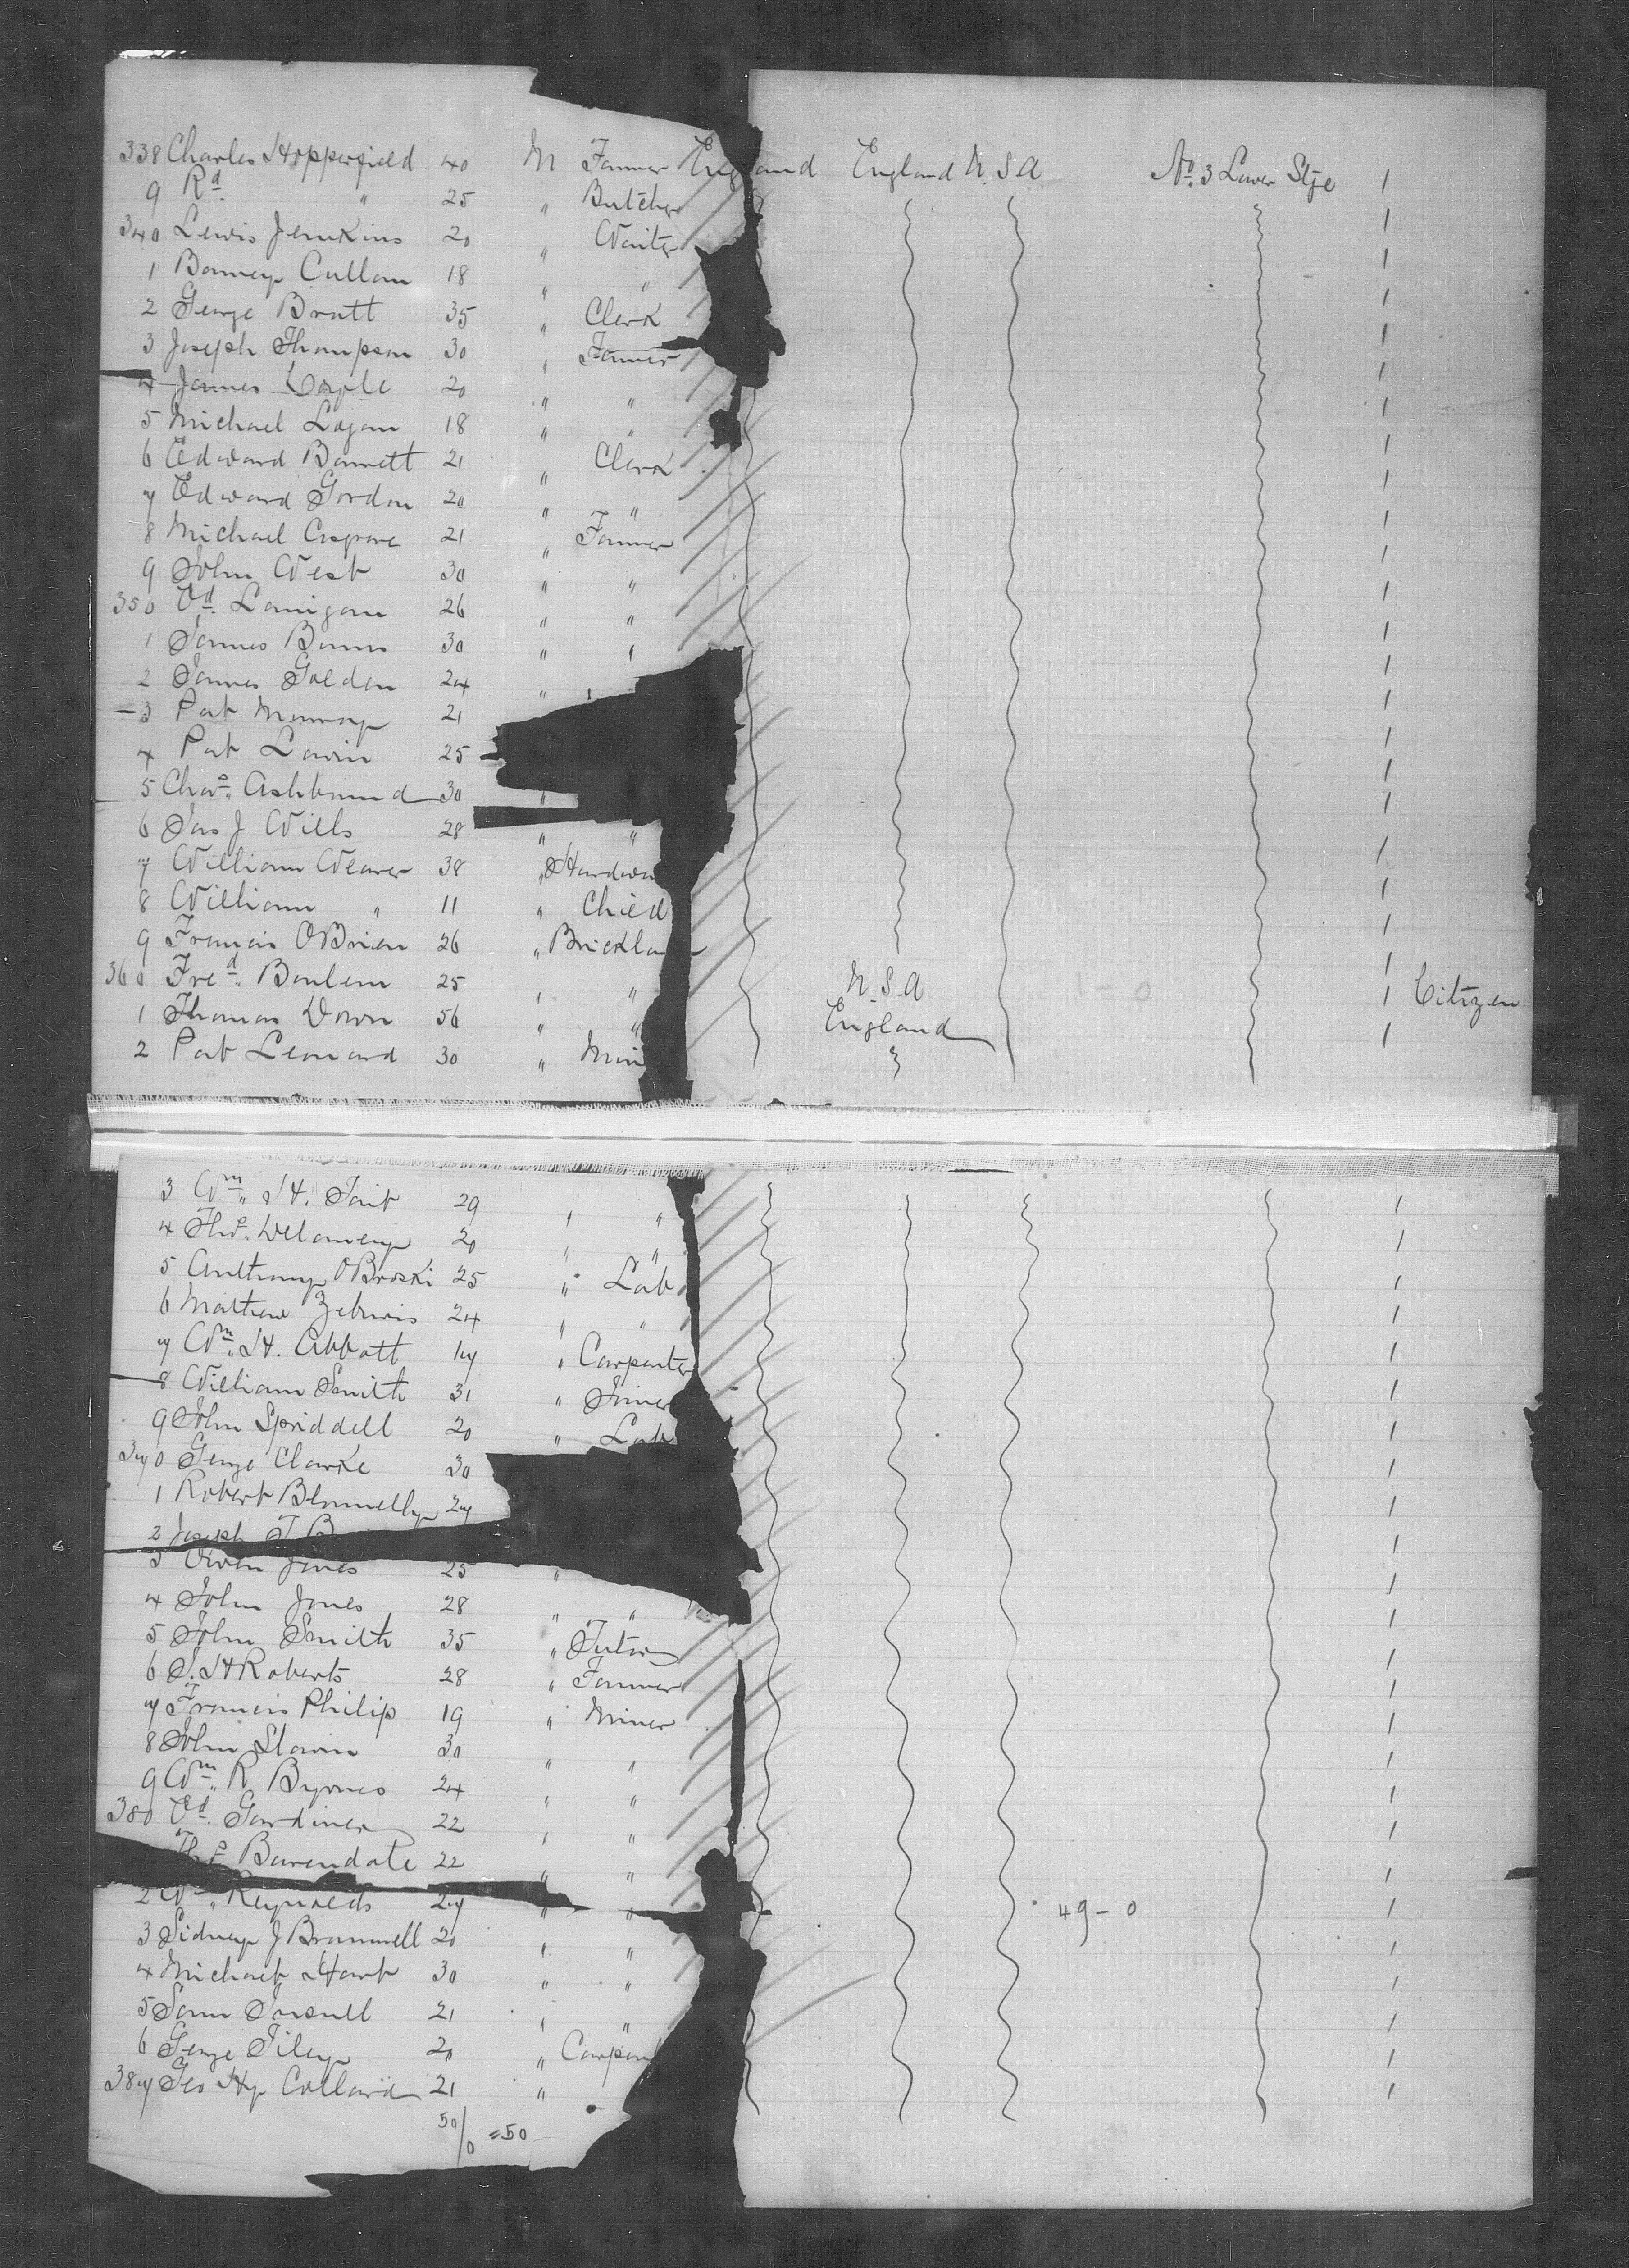 338 Charles Hopperfield 40 M Farmer England England U.S.A. No. 3 Lower Stge /
9 Rd. " 25 " Butcher /
340 Lewis Jenkins 20 " Waiter /
1 Barney Cullam 18 " " /
2 George Bratt 35 " Clerk /
3 Joseph Thompson 30 " Farmer /
4 James 20 " " /
5 Michael Logan 18 " " /
6 Edward Barrett 21 " Clerk /
7 Edward Gordon 20 " " /
8 Michael 21 " Farmer /
9 John West 30 " " /
350 Ed. Lanigan 26 " " /
1 James Burns 30 " " /
2 James Golden 24 " /
3 Pat Murray 21 /
4 Pat Lavin 25 /
5 Chas. 30 " /
6 Jas J Wills 28 " " /
7 William Weaver 38 " Hardwa /
8 William " 11 " Child /
9 Francis OBrien 26 " Brickla /
360 Fred. 25 " " U.S.A 1-0 /
1 Thomas Down 56 " " England / Citizen
2 Pat Leonard 30 " Min /
3 Wm. H. Tait 29 " " /
4 Thos. Delaney 20 " " /
5 Anthony OBroski 25 " Lab /
6 Mathew 24 " " /
7 Wm. H. Abbott 17 " Carpenter /
8 William Smith 31 " Joiner /
9 John Spriddell 20 " Lab /
370 George Clarke 30 /
1 Robert 27 /
2 Joseph T B
3 Owen Jones 25 " /
4 John Jones 28 " " /
5 John Smith 35 " /
6 J. H Roberts 28 " Farmer /
7 Francis Philip 19 " Miner /
8 John 30 " " /
9 Wm. R Byrnes 24 " " /
380 Ed. Gardiner 22 " " /
Thos. Barendale 22 " " /
2 Wm. Reynolds 27 " " 49-0 /
3 Sidney J Brammell 20 " " /
4 Michael Hart 30 " " /
5 Sam 21 " " /
6 George Tiley 20 " Carpen /
387 Geo Hy Collard 21 " /
50/0 =50